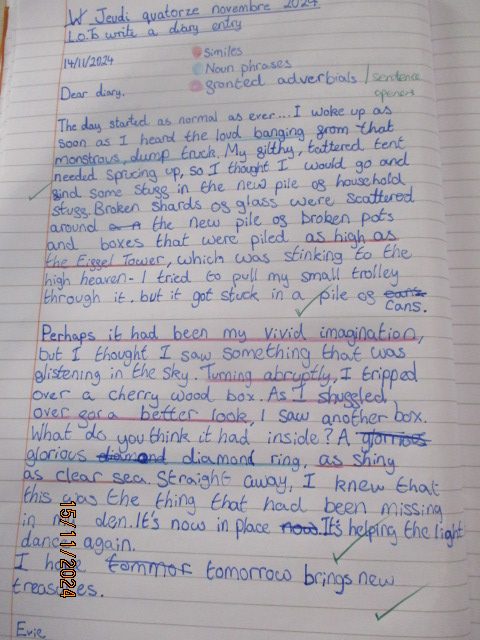 W Jeudi quatorze novembre 2024
L.O.To write a diary entry
14/11/2024
Similes
Noun phrases
fronted adverbials / sentence
openers
Dear diary.
The day started as normal as ever... I woke up as
soon as I heard the loud banging from that
monstrous, dump truck. My filthy, tattered tent
needed sprucing up, so I thought I would go and
find some stuff in the new pile of household
stuff. Broken shards of glass were scattered
around the new pile of broken pots
and boxes that were piled as high as
the Eiffel Tower, which was stinking to the
high heaven - I tried to pull my small trolley
through it. but it got stuck in a pile of
cans.
Perhaps it had been my vivid imagination,
but I thought I saw something that was
glistening in the sky. Turning abruptly, I tripped
over a cherry wood box. As I shuffled,
over for a better look, I saw another box.
What do you think it had inside? A glorious
glorious diamond diamond ring, as shiny
as clear sea. Straight away, I knew that
this was the thing that had been missing
in den. It's now in place now. It's helping the light
dance again.
I tomorrow brings new
treasures.
Evie
15/11/2024